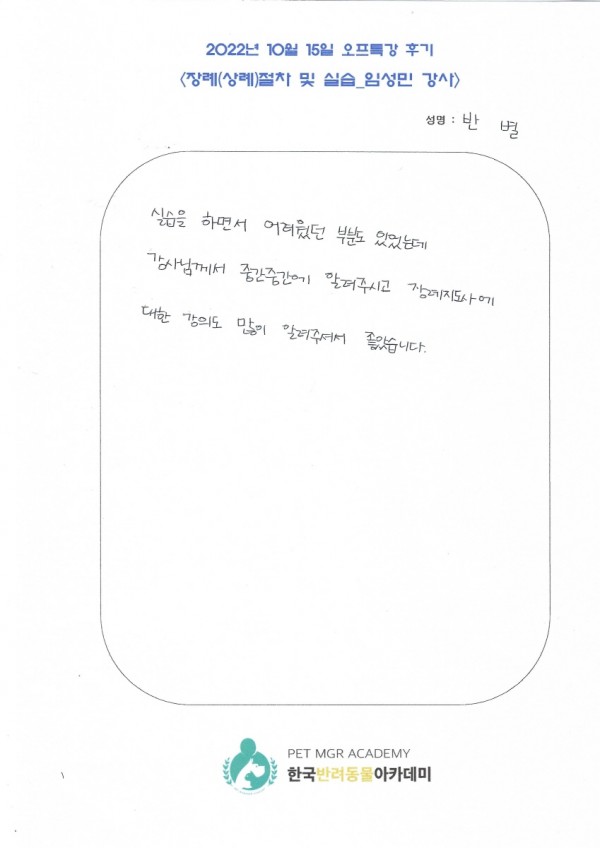 2022년 10월 15일 오프특강 후기
<장례(상례)절차 및 실습_임성민 강사>
성명 : 반 별
실습을 하면서 어려웠던 부분도 있었는데
강사님께서 중간중간에 알려주시고 장례지도사에
대한 강의도 많이 알려주셔서 좋았습니다.
PET MGR ACADEMY
한국반려동물아카데미